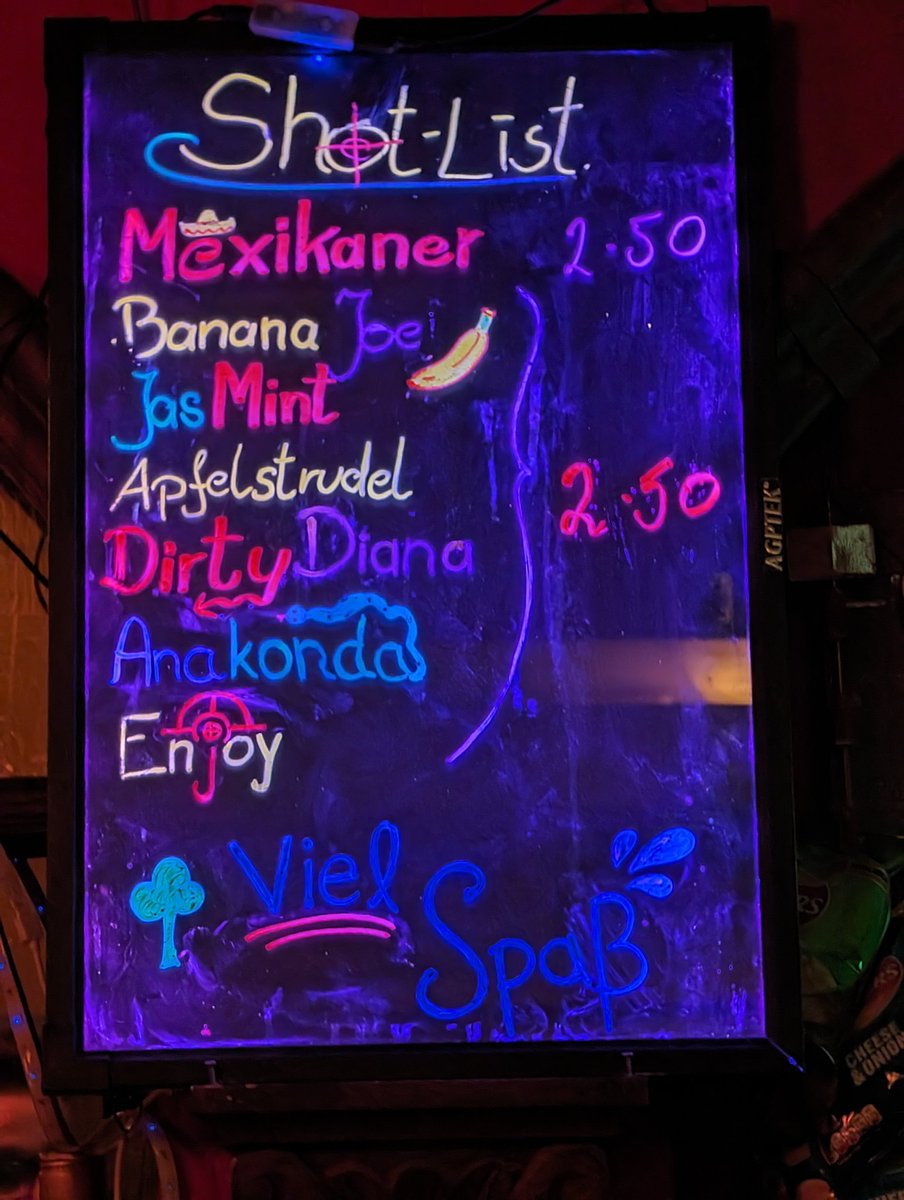 Shot-List.
Mexikaner 2.50
Banana Joe!
JasMint
Apfelstrudel
2.50
Dirty Diana
Anakonda
Enjoy
Viel
Spaß
AGPTEK
CHEESE
& ONION